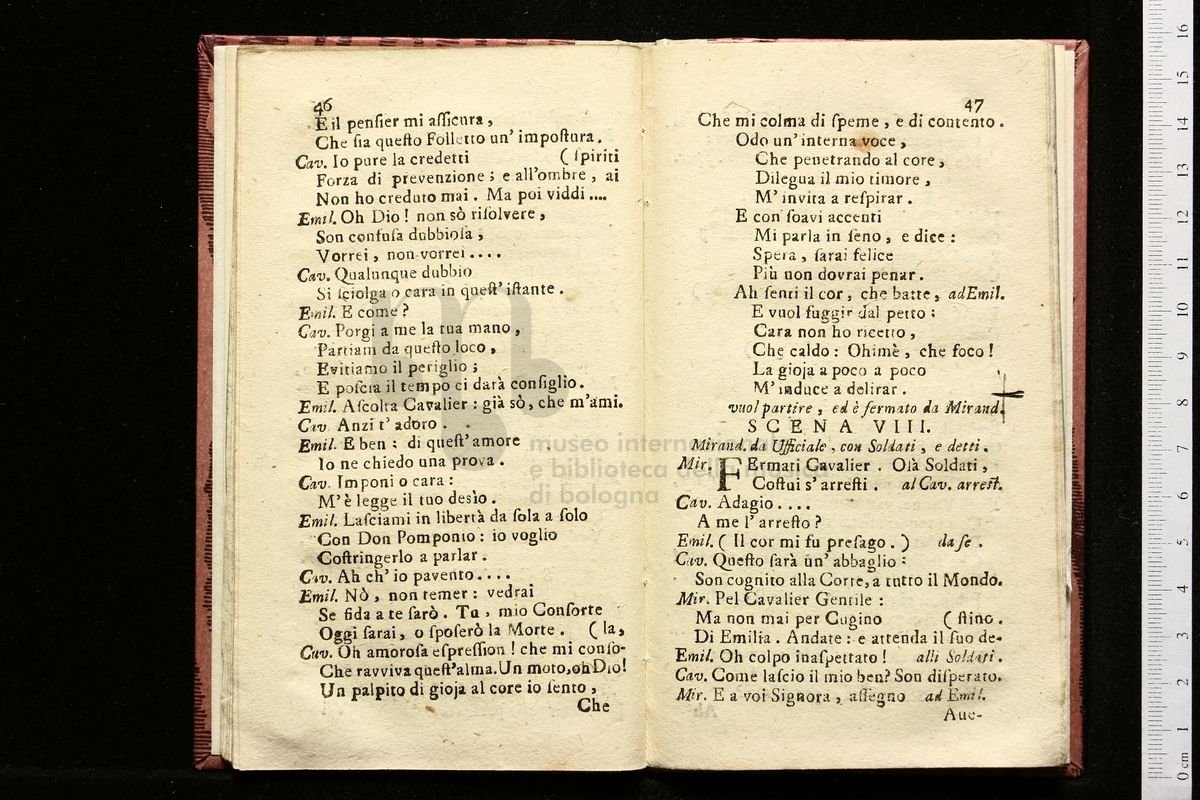 46
E il penſier mi aſſicura,
Che ſia queſto Folletto un' impoſtura.
Cav. Io pure la credetti ( ſpiriti
Forza di prevenzione; e all'ombre, ai
Non ho creduto mai. Ma poi viddi....
Emil. Oh Dio! non sò riſolvere,
Son confuſa dubbioſa,
Vorrei, non vorrei....
Cav. Qualunque dubbio
Si ſciolga o cara in queſt' iſtante.
Emil. E come?
Cav. Porgi a me la tua mano,
Partiam da queſto loco,
Evitiamo il periglio;
E poſcia il tempo ci darà conſiglio.
Emil. Aſcolta Cavalier: già sò, che m'ami.
Cav. Anzi t' adoro.
Emil. E ben: di queſt' amore
Io ne chiedo una prova.
Cav. Imponi o cara:
M' è legge il tuo desìo.
Emil. Laſciami in libertà da ſola a ſolo
Con Don Pomponio: io voglio
Coſtringerlo a parlar.
Cav. Ah ch' io pavento....
Emil. Nò, non temer: vedrai
Se fida a te ſarò. Tu, mio Conſorte
Oggi ſarai, o ſpoſerò la Morte. ( la,
Cav. Oh amoroſa eſpreſſion! che mi conſo-
Che ravviva queſt'alma. Un moto, oh Dio!
Un palpito di gioja al core io ſento,
Che
47
Che mi colma di ſpeme, e di contento.
Odo un' interna voce,
Che penetrando al core,
Dilegua il mio timore,
M' invita a reſpirar.
E con ſoavi accenti
Mi parla in ſeno, e dice:
Spera, ſarai felice
Più non dovrai penar.
Ah ſenti il cor, che batte, ad Emil.
E vuol fuggir dal petto:
Cara non ho ricetto,
Che caldo: Ohimè, che foco!
La gioja a poco a poco
M' induce a delirar.
vuol partire, ed è fermato da Mirand.
SCENA VIII.
Mirand. da Ufficiale, con Soldati, e detti.
Mir. FErmati Cavalier. Olà Soldati,
Coſtui s' arreſti. al Cav. arreſt.
Cav. Adagio....
A me l' arreſto?
Emil. ( Il cor mi fu preſago. ) da ſe.
Cav. Queſto ſarà un' abbaglio:
Son cognito alla Corte, a tutto il Mondo.
Mir. Pel Cavalier Gentile:
Ma non mai per Cugino ( ſtino.
Di Emilia. Andate: e attenda il ſuo de-
Emil. Oh colpo inaſpettato! alli Soldati.
Cav. Come laſcio il mio ben? Son diſperato.
Mir. E a voi Signora, aſſegno ad Emil.
Aue-
museo internazionale
e biblioteca della musica
di bologna
0 cm 1 2 3 4 5 6 7 8 9 10 11 12 13 14 15 16